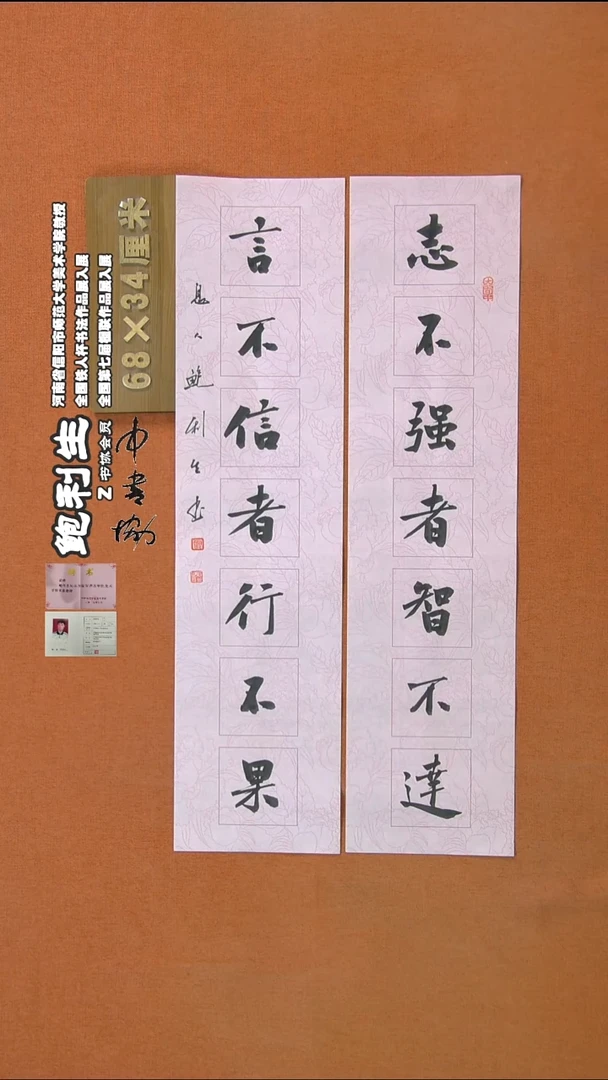 志不强者智不達
言不信者行不果
息人鲍利生书
68×34厘米
河南省信阳市师范大学美术学院教授
全国铁人杯书法作品展入展
全国第七届楹联作品展入展
鲍利生
Z书协会员
中书协